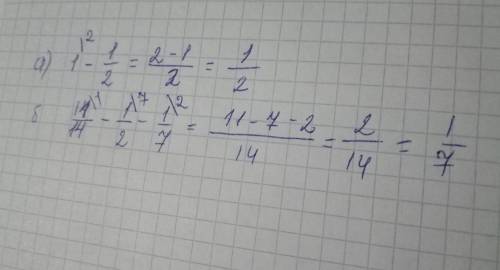 а) 1\² - 1/2 = 2-1/2 = 1/2
б 11/14\¹ - 1/2\⁷ - 1/7\² = 11-7-2/14 = 2/14 = 1/7